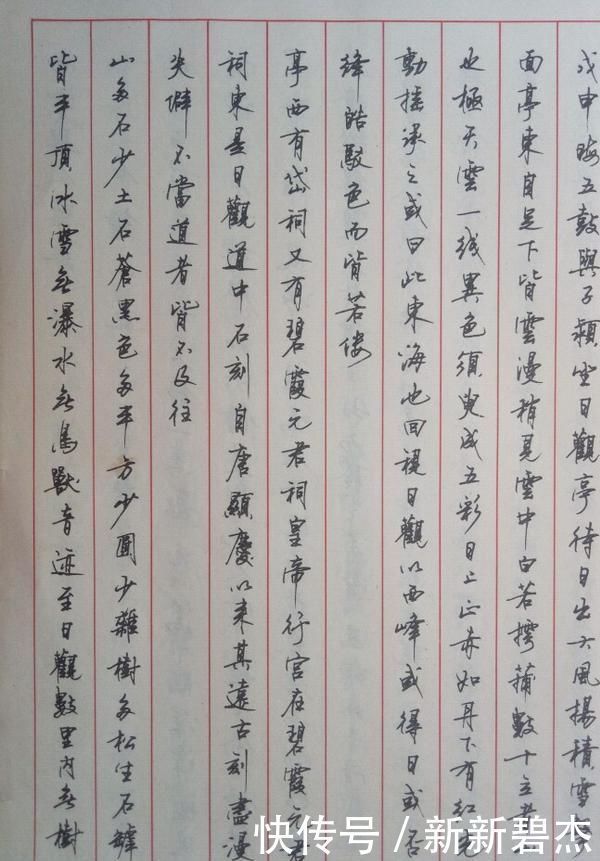 戊申晦五鼓與子潁坐日觀亭待日出大風揚積雪
面亭東自足下皆雲漫稍見雲中白若摴蒱數十立者
也極天雲一线異色須臾成五彩日上正赤如丹下有红光
動搖承之或曰此東海也回視日觀以西峰或得日或否
絳皓駁色而皆若偻
亭西有岱祠又有碧霞元君祠皇帝行宮在碧霞元君
祠東是日觀道中石刻自唐顯慶以来其遠古刻盡漫
失僻不當道者皆不及往
山多石少土石蒼黑色多平方少圓少雜樹多松生石罅
皆平頂冰雪无瀑水无鳥獸音迹至日觀數里内无樹
快传号／新新碧杰